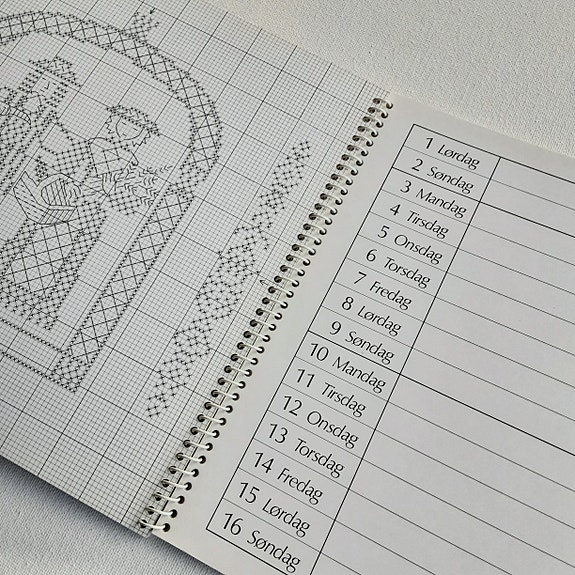 1 Lørdag
2 Søndag
3 Mandag
4 Tirsdag
5 Onsdag
6 Torsdag
7 Fredag
8 Lørdag
9 Søndag
10 Mandag
11 Tirsdag
12 Onsdag
13 Torsdag
14 Fredag
15 Lørdag
16 Søndag